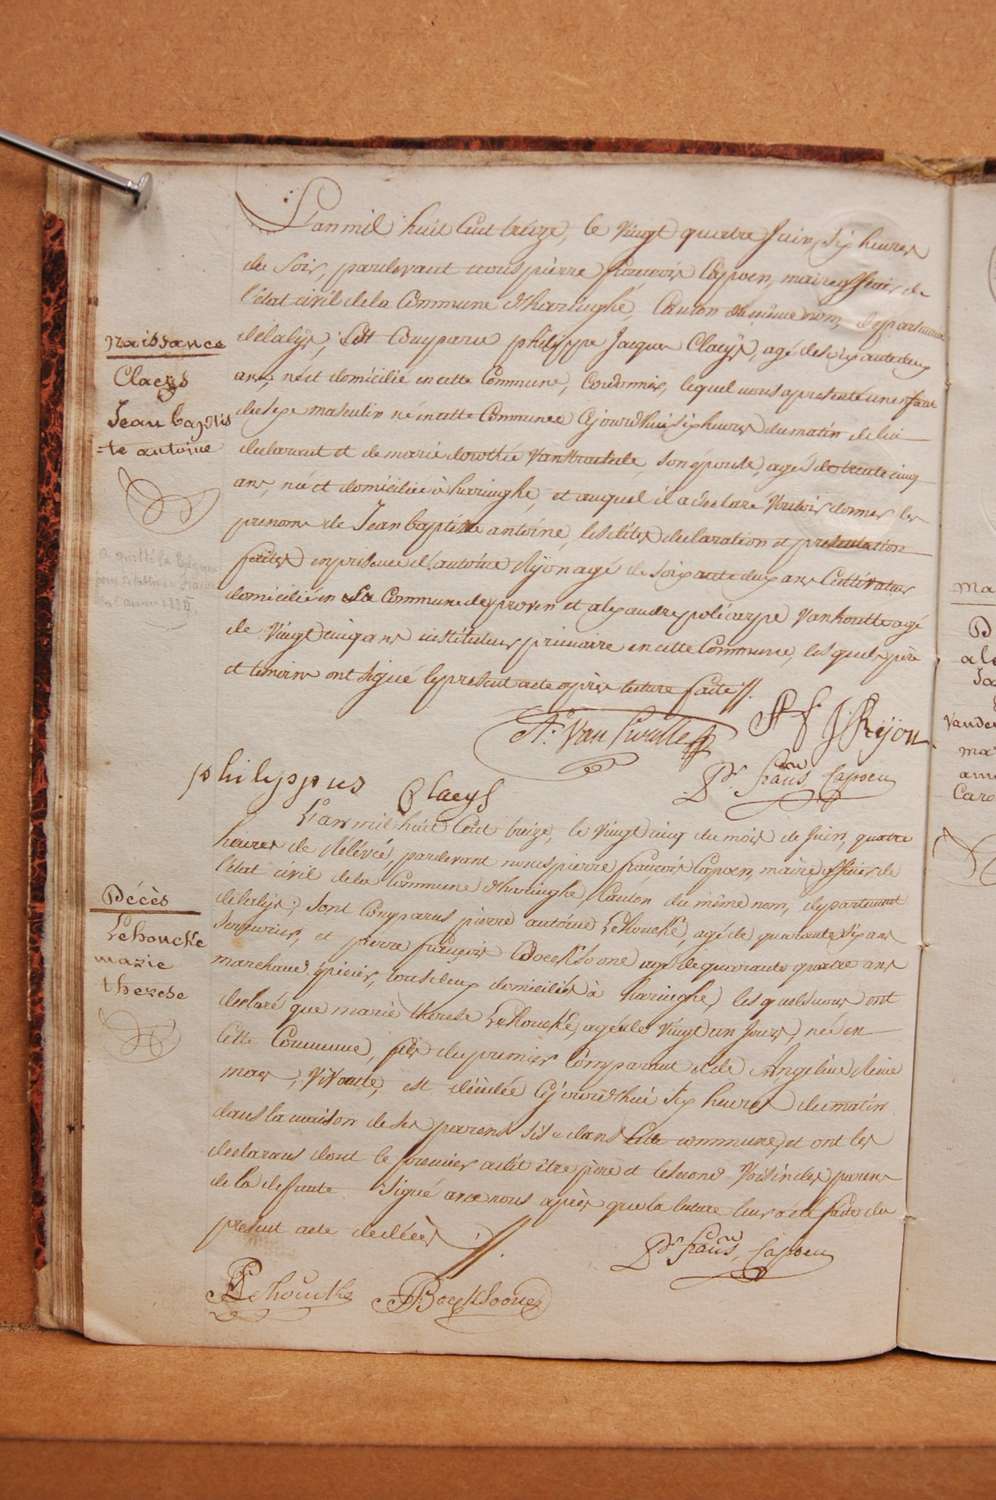 L'an mil huit cent treize, le vingt quatre Juin, six heures
de soir, pardevant nous pierre francois Capoen, maire officier de
l'état civil de la Commune d'haringhe, Canton du même nom, departement
naissance
de la lys; est comparu philippe Jacques Claeys, agé de
Claeys
ans, né et domicilié en cette Commune, Cordonnier, lequel nous a presenté un enfant
Jean baptis
de sexe masculin né en cette Commune ce jourd'hui six heures du matin de lui
-te antoine
declarant et de marie dorothée son épouse, agée de trente cinq
ans, née et domiciliée à haringhe, et auquel il a declaré vouloir donner les
prenoms de Jean baptiste antoine, les dites declaration et presentation
a quitté la
faites en présence d'antoine Ryon agé de soixante deux ans Cultivateur
domicilié en la Commune de proven et alexandre policarpe Vanhoutte agé
de vingt cinq ans instituteur primaire en cette Commune, les quels père
et temoins ont signé le present acte après lecture faite //.
J Ryon
philippus Claeys
Pr. francs Capoen
L'an mil huit Cent treize, le vingt cinq du mois de Juin, quatre
heures de rélévée, pardevant nous pierre francois Capoen, maire officier de
l'état civil de la Commune d'haringhe, Canton du même nom, departement
Décès
de la lys; sont comparus pierre antoine Lehoucke, agé de quarante six ans
Lehoucke
Serrurier, et pierre françois Boecksoone agé de quarante quatre ans
marie
marchand épicier, tous deux domiciliés à haringhe, les quels nous ont
therese
declaré que marie therese Lehoucke, agée de vingt un jours, née en
cette Commune, fille du premier Comparant et de Angeline Reine
vivante, est décédée ce jourd'hui six heures du matin
dans la maison de ses parens sise dans cette commune, et ont les
declarans dont le premier a dit être père et le second voisin des parens
de la defunte signé avec nous après que la lecture leur a été faite du
present acte de décès //.
Pr. francs Capoen
Lehoucke Boecksoone